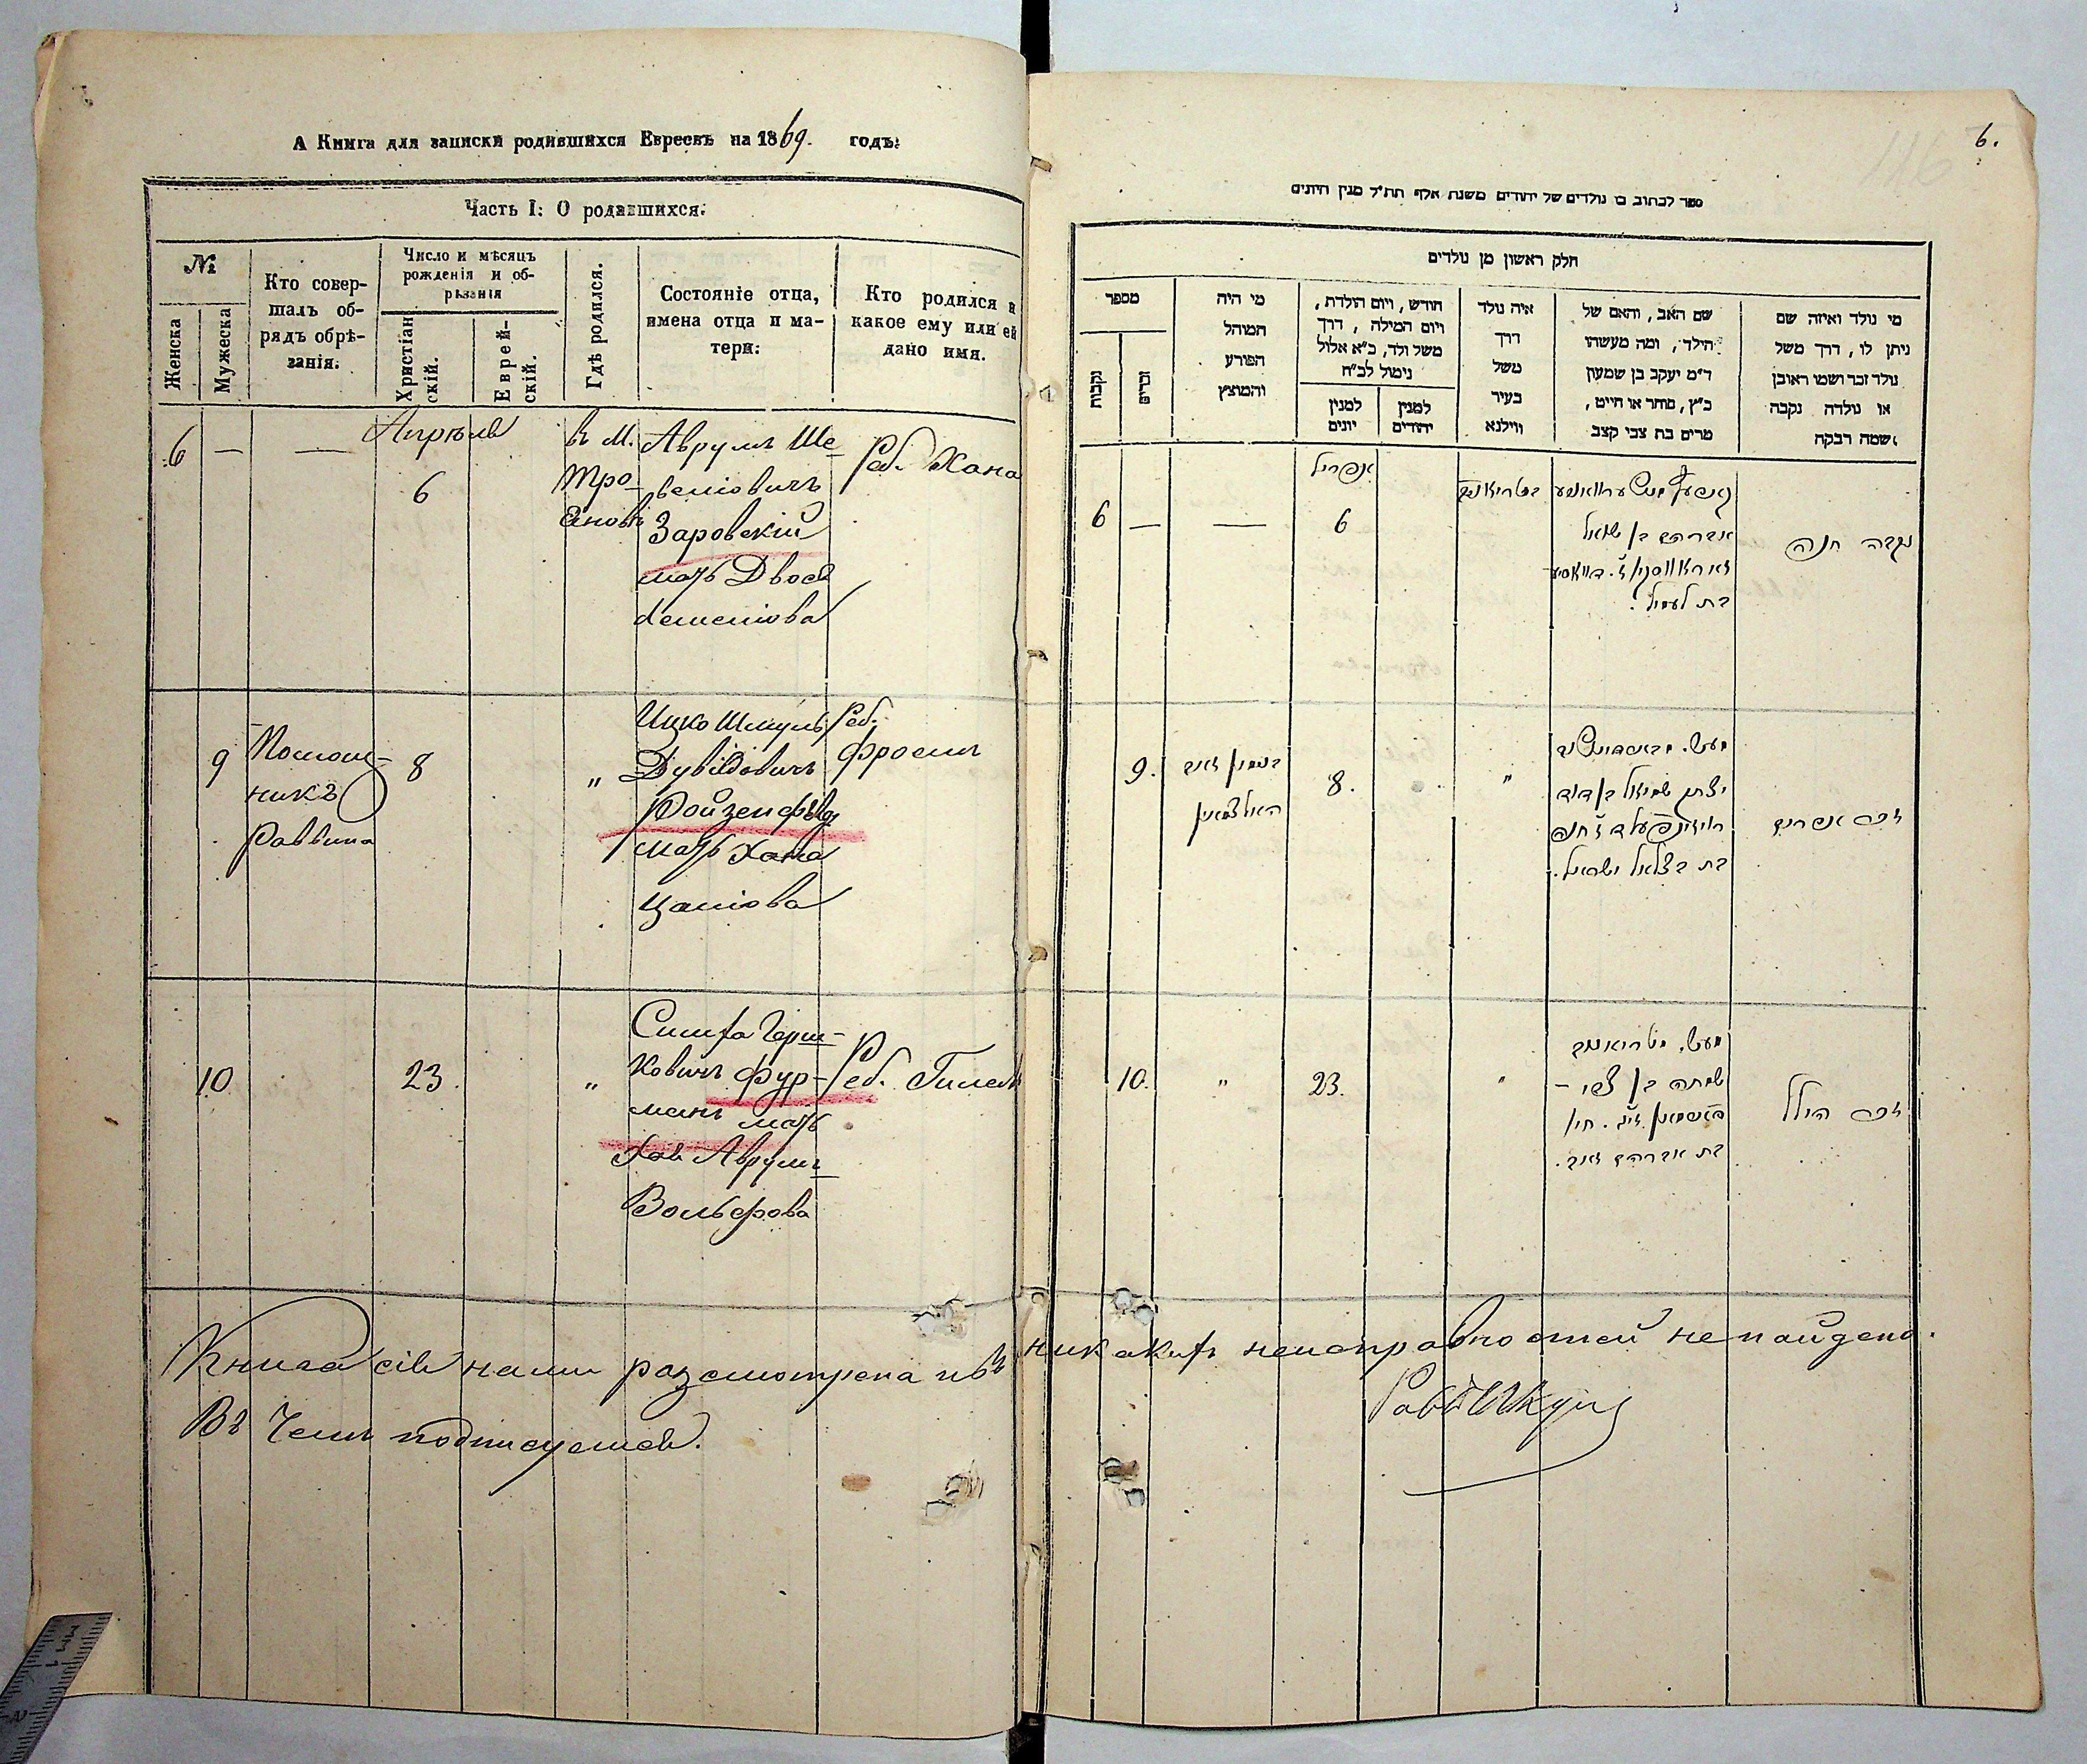 А Книга для записки родившихся Евреевъ на 1869. годъ:
Часть I: О родавшихся:
№
Женска
Мужеска
Кто совер-
шалъ об-
рядъ обрѣ-
занія.
Число и мѣсяцъ
рожденія и об-
рѣзанія
Христіан
скій.
Еврей-
скій.
Гдѣ родился.
Состояніе отца,
имена отца и ма-
тери:
Кто родился и
какое ему или ей
дано имя.
6
—
—
Апрѣля
6
въ М.
Тро-
яновѣ
Аврумъ Ше-
велiовичъ
Заровскій
мать Двося
Реб. Хана
9
Помощ-
никъ
Раввина
8
"
Ицко Шмуль
Дувидовичъ
Ройзенфельд
мать Хана
Реб.
Фроимъ
10
23.
"
Симха Герш-
ковичъ Фур-
манъ мать
Хая Аврумъ
Вольфова
Реб. Гилель
Книга сія нами разсмотрена и въ
Въ чемъ подписуемся.
6.
116
ספר לכתוב בו נולדים של יהודים משנת אלף תת״ל מנין היונים
חלק ראשון מן נולדים
מספר
נקבות
זכרים
מי היה
המוהל
הפורע
והמוצץ
חודש, ויום הולדת,
ויום המילה, דרך
משל ולד, כ״א אלול
נימול לכ״ח
למנין
יונים
למנין
יהודים
איה נולד
דרך
משל
בעיר
ווילנא
שם האב, והאם של
הילד, ומה מעשהו
ר״מ יעקב בן שמעון
כ״ץ, סוחר או חייט,
מרים בת צבי קצב
מי נולד ואיזה שם
ניתן לו, דרך משל
נולד זכר ושמו ראובן
או נולדה נקבה
ושמה רבקה
6
—
—
אפריל
6
אברהם בן שאול
נקבה חנה
9.
בנימין זאב
האלצמאן
8.
"
יצחק שמואל בן דוד
בת בצלאל ישראל.
זכר אפרים
10.
"
23.
"
שמחה בן צבי –
בת אברהם זאב.
זכר הילל
никакихъ неисправностей не найдено.